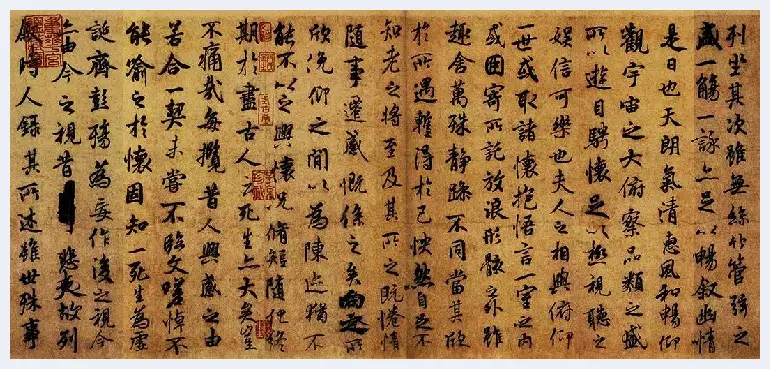 列坐其次雖無絲竹管弦之
盛一觴一詠亦足以暢敘幽情
是日也天朗氣清惠風和暢仰
觀宇宙之大俯察品類之盛
所以遊目騁懷足以極視聽之
娛信可樂也夫人之相與俯仰
一世或取諸懷抱悟言一室之內
或因寄所託放浪形骸之外雖
趣舍萬殊靜躁不同當其欣
於所遇蹔得於己怏然自足不
知老之將至及其所之既惓情
隨事遷感慨係之矣向之所
欣俛仰之間以為陳迹猶不
能不以之興懷況脩短隨化終
期於盡古人云死生亦大矣豈
不痛哉每攬昔人興感之由
若合一契未嘗不臨文嗟悼不
能喻之於懷固知一死生為虛
誕齊彭殤為妄作後之視今
亦由今之視昔悲夫故列
敘時人錄其所述雖世殊事